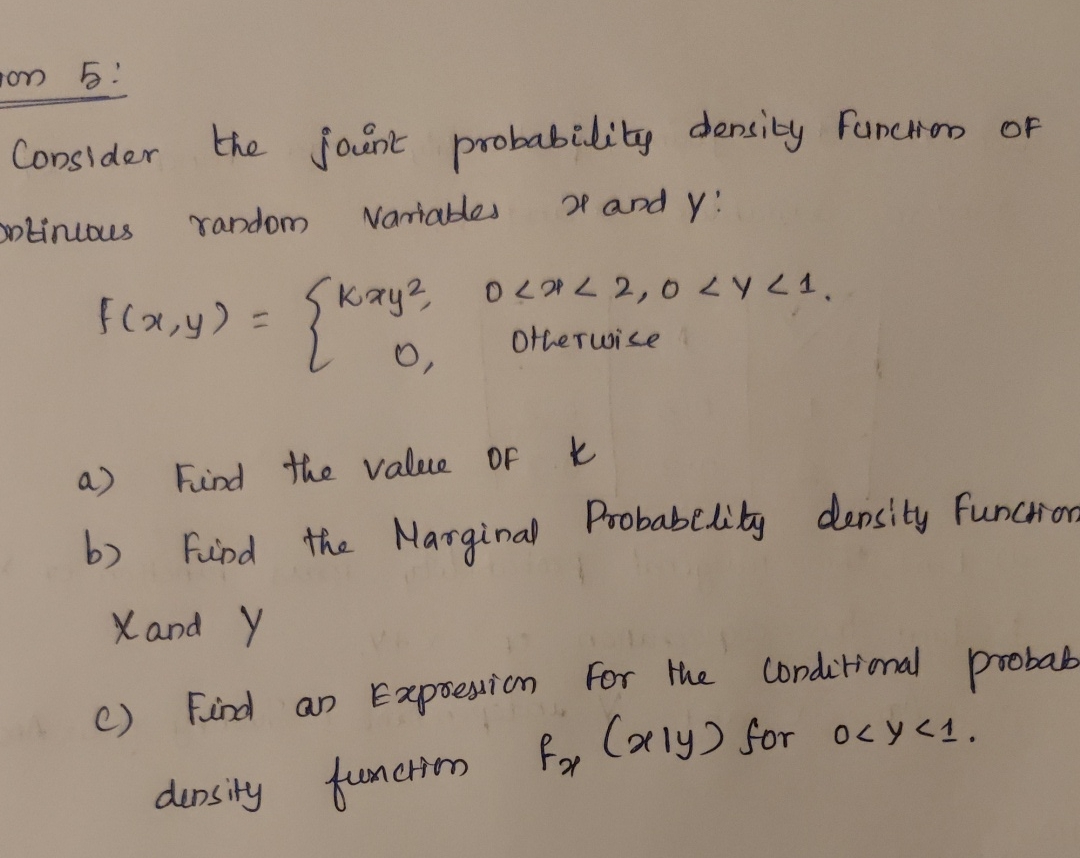 on 5:
Consider the joint probability density function OF
ontinuous random variables x and y:
f(x,y) = { Kxy², 0<x<2, 0<y<1.
0, Otherwise
a) Find the value OF k
b) Find the Marginal Probability density Function
X and Y
c) Find an Expression For the Conditional probab
density function fx (x|y) for 0<y<1.